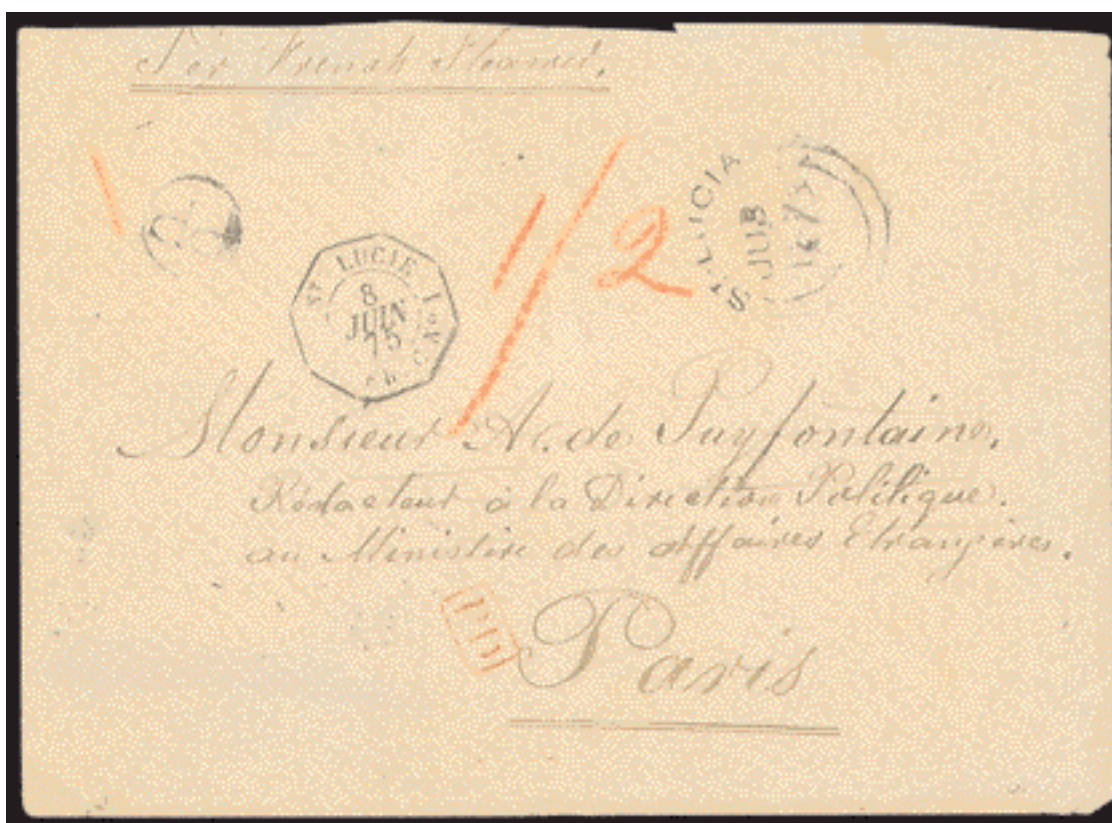 Per French Steamer.
1/2
ST LUCIA
JU 8
ST LUCIE
8
JUIN
75
Monsieur A. de Puyfontaine,
Rédacteur à la Direction Politique.
au Ministère des Affaires Etrangères.
PD
Paris